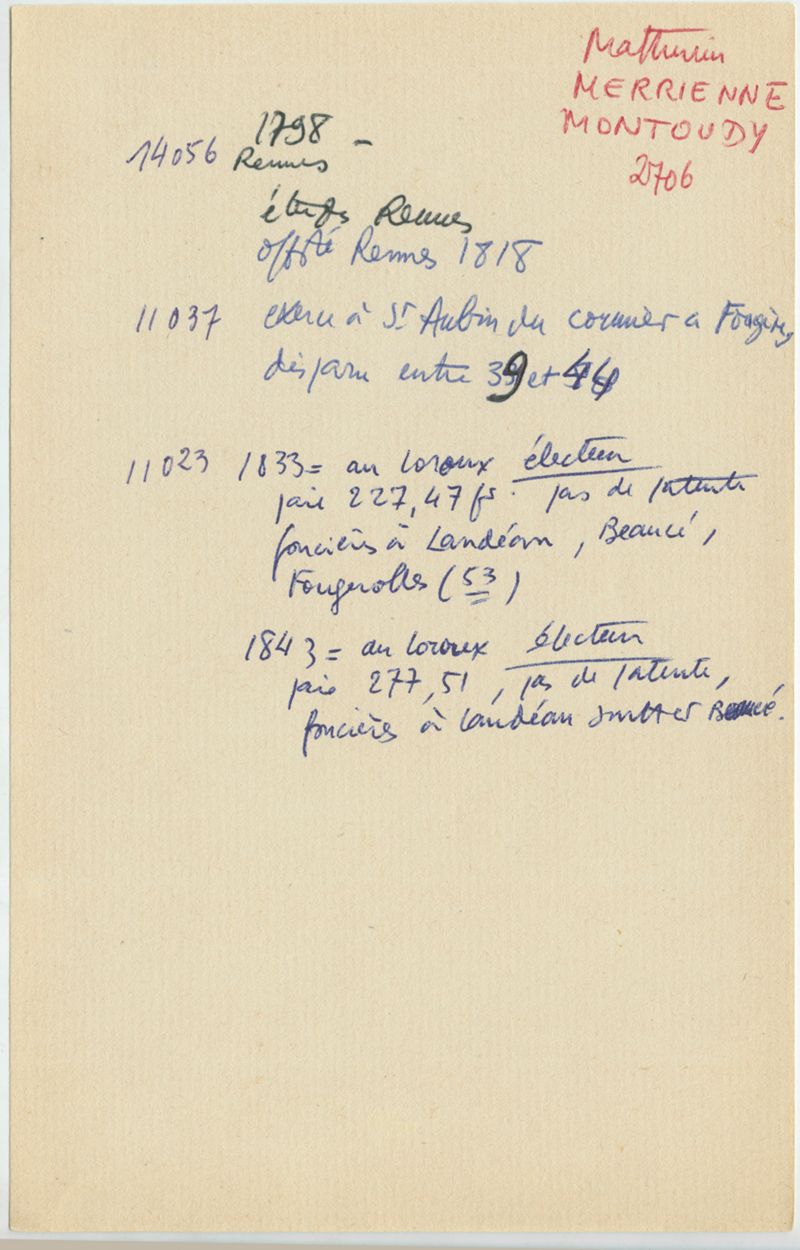 Mathurin
MERRIENNE
MONTOUDY
2706
1798 -
14056 Rennes
études Rennes
offté Rennes 1818
11037 exerce à St Aubin du cormier à Fougères
disparu entre 39 et 44
11023 1833 = au loroux électeur
paie 227,47 fs. pas de patente
foncières à Landéan, Beaucé,
Fougerolles (53)
1843 = au loroux électeur
paie 277,51, pas de patente,
foncières à Landéan et Beaucé.